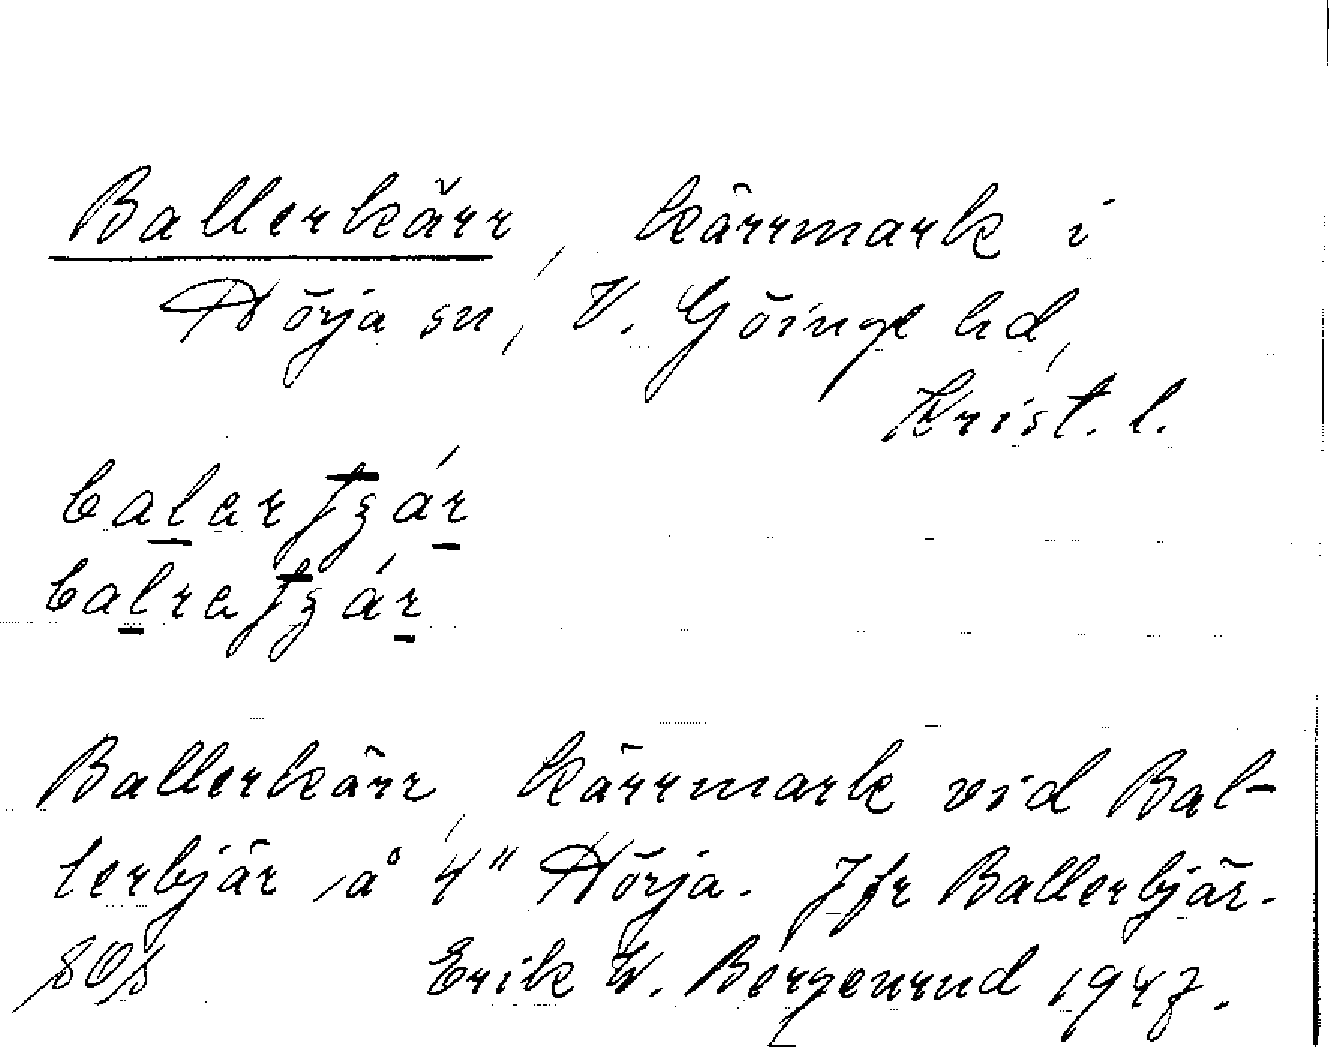 Ballerkärr, kärrmark i
Hörja sn, V. Göinge hd,
Krist. l.
Ballerkärr, kärrmark vid Bal-
lerbjär, å 4" Hörja. Jfr Ballerbjär.
Erik W. Bergenrud 1947.